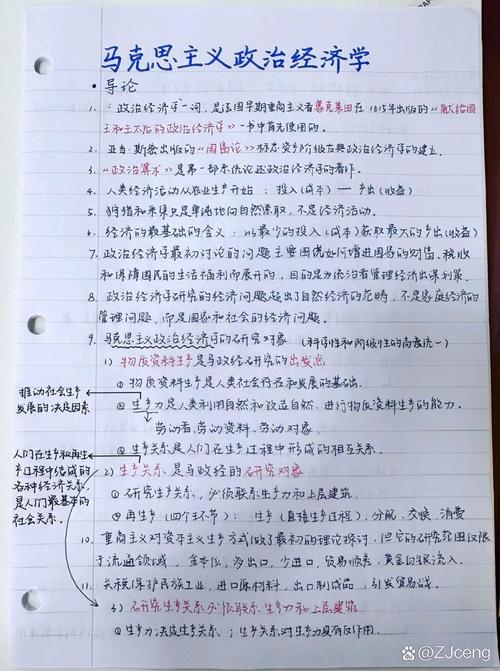 马克思主义政治经济学
• 导论
1. "政治经济学"一词,是法国早期重商主义者蒙克莱田在1615年出版的"献给国
王和王太后的政治经济学"一书中首先使用的。
2. 亚当·斯密出版的"国富论"标志资产阶级古典政治经济学的建立。
3. "政治算术"是第一部系统论述政治经济学的著作。
4. 人类经济活动从农业生产开始:投入(成本)— 产出(收益)
5. 狩猎和采集只是单纯地向自然索取,不是经济活动。
6. 经济的最基础的含义:以最少的投入(成本)获取最大的产出(收益)
7. 政治经济学最初讨论的问题主要围绕如何增进国家的财富、税收
和保障国民的生活福利而展开的,目的是为统治者管理经济出谋划策。
8. 政治经济学研究的经济问题超出了自然经济的范畴,不是家庭经济的
管理问题,而是国家和社会的经济问题。
9. 马克思主义政治经济学的研究对象(科学性和阶级性的高度统一)
1) 物质资料生产是马政经研究的出发点
① 物质资料生产是人类社会存在和发展的基础.
推动社会生产
发展的决定因素
② 生产力是人类利用自然和改造自然、进行物质资料生产的能力.
劳动者、劳动资料、劳动对象.
③ 生产关系是人们在生产过程中形成的相互关系.
人们在生产和再生
产过程中结成的
各种经济关系,
是人们最基本的
社会关系.
2) 生产关系是马政经的研究对象
① 研究生产关系,必须联系生产力和上层建筑
② 再生产(四个环节):生产(直接生产过程)、分配、交换、消费
10. 重商主义对资本主义生产方式做了最初的理论探讨,但它的研究范围仅限
于流通领域,金本位,多出口,少进口,贸易顺差,黄金白银流入。
11. 关税保护民族工业,进口原材料,出口制成品,引发贸易战。
3) 研究生产关系必须联系生产力和上层建筑
① 生产力决定生产关系;生产关系对生产力具有反作用.
@ZJceng